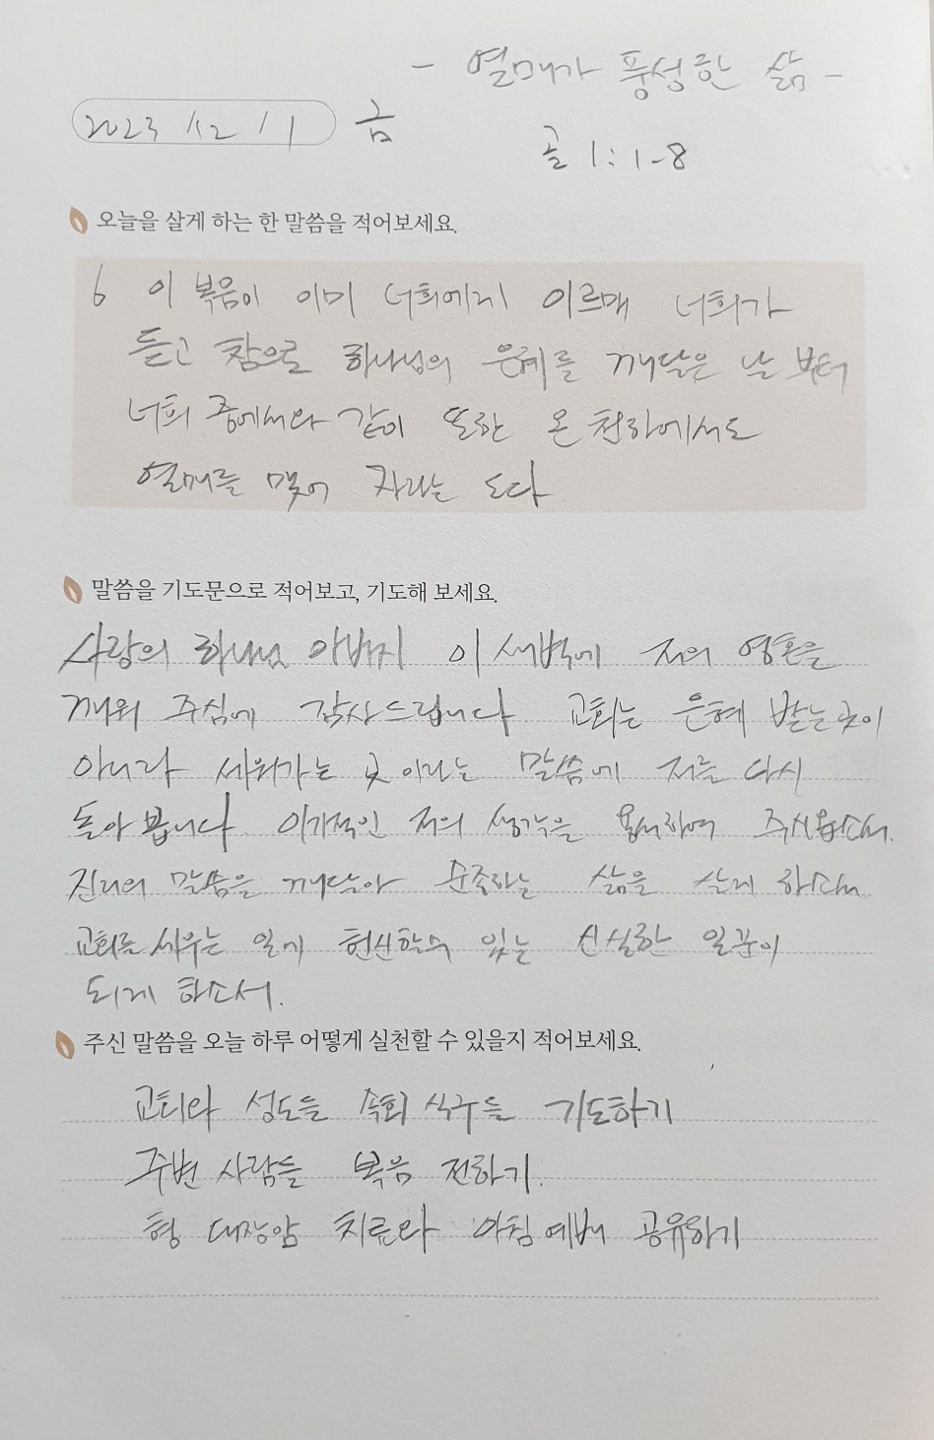 - 열매가 풍성한 삶 -
2023 / 12 / 1 금
골 1 : 1-8
오늘을 살게 하는 한 말씀을 적어보세요.
6 이 복음이 이미 너희에게 이르매 너희가
듣고 참으로 하나님의 은혜를 깨달은 날 부터
너희 중에서와 같이 또한 온 천하에서도
열매를 맺어 자라는 도다
말씀을 기도문으로 적어보고, 기도해 보세요.
사랑의 하나님 아버지 이 새벽에 저의 영혼을
깨워 주심에 감사드립니다. 교회는 은혜 받는 곳이
아니라 세워가는 곳 이라는 말씀에 저를 다시
돌아 봅니다. 이기적인 저의 생각을 용서하여 주시옵소서.
진리의 말씀을 깨달아 순종하는 삶을 살게 하소서
교회를 세우는 일에 헌신할수 있는 신실한 일꾼이
되게 하소서.
주신 말씀을 오늘 하루 어떻게 실천할 수 있을지 적어보세요.
교회와 성도들 속회 식구들 기도하기
주변 사람들 복음 전하기.
형 대장암 치료와 아침 예배 공유하기